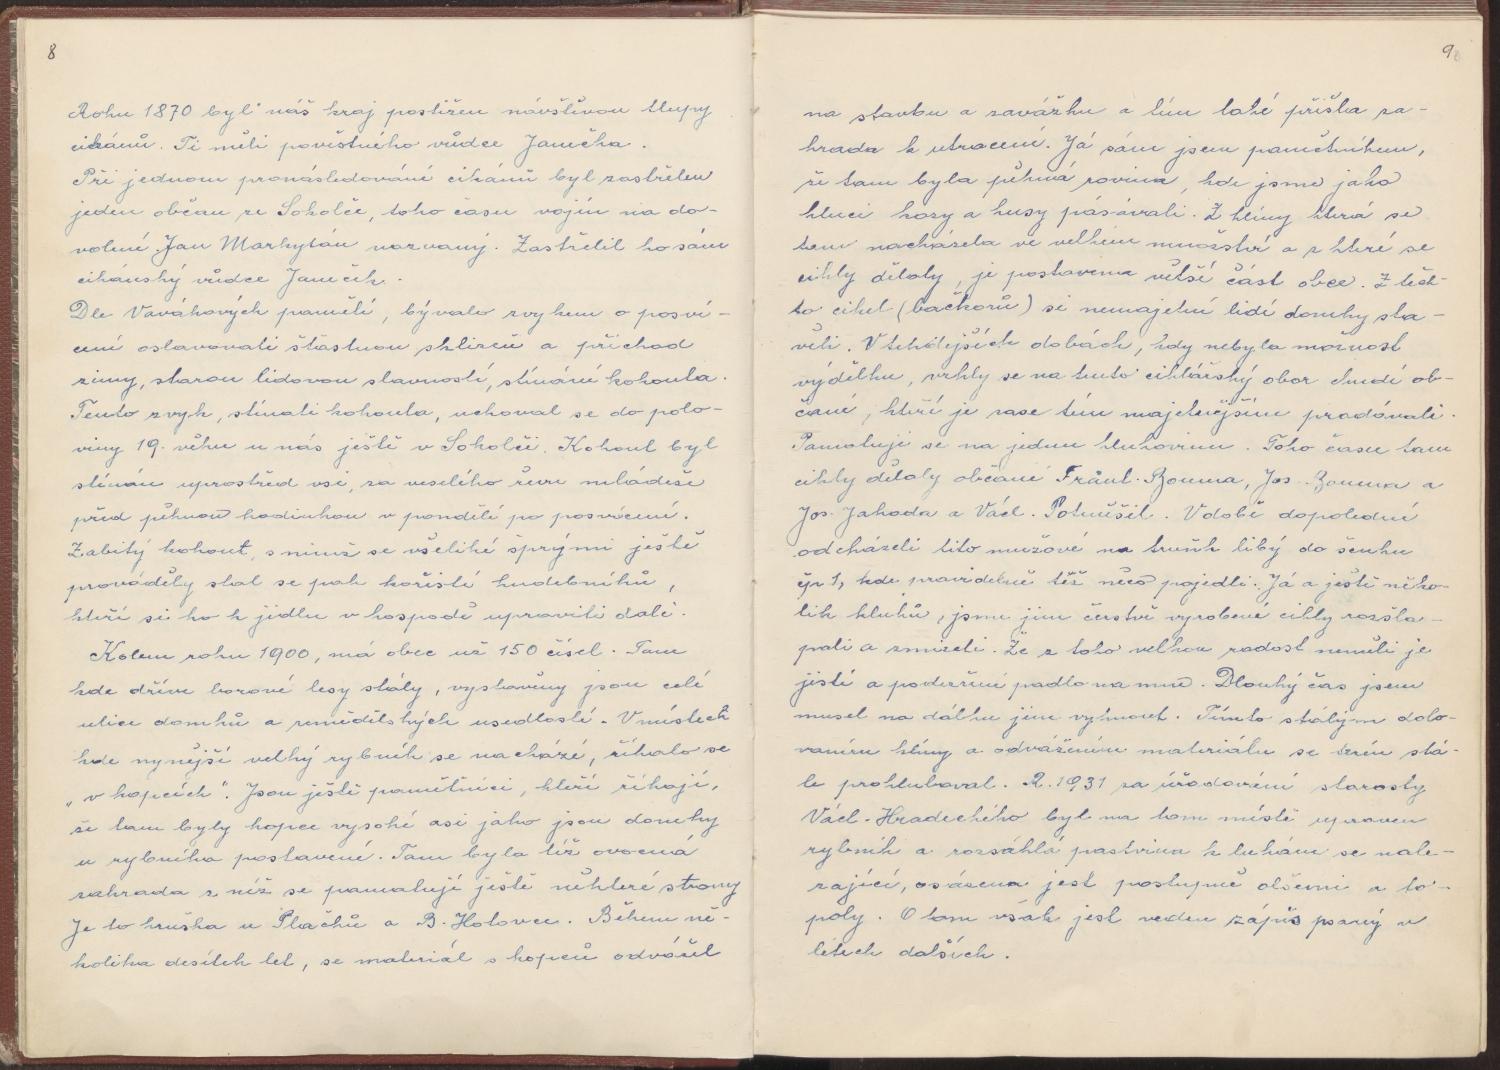 8
Roku 1870 byl náš kraj postižen návštěvou tlupy
cikánů. Ti měli pověstného vůdce Janečka.
Při jednom pronásledování cikánů byl zastřelen
jeden občan ze Sokolče, toho času vojín na do-
volené, Jan Markytán nazvaný. Zastřelil ho sám
cikánský vůdce Janeček.
Dle Vavákových pamětí, bývalo zvykem o posví-
cení oslavovati šťastnou sklizeň a příchod
zimy, starou lidovou slavností, stínání kohouta.
Tento zvyk, stínati kohouta, uchoval se do polo-
viny 19. věku u nás ještě v Sokolči. Kohout byl
stínán uprostřed vsi, za veselého řevu mládeže
před pěknou hodinkou v pondělí po posvícení.
Zabitý kohout, s nímž se všeliké šprýmy ještě
prováděly stal se pak kořistí hudebníků,
kteří si ho k jídlu v hospodě upraviti dali.
Kolem roku 1900, má obec už 150 čísel. Tam
kde dříve borové lesy stály, vystavěny jsou celé
ulice domků a zemědělských usedlostí. V místech
kde nynější velký rybník se nachází, říkalo se
„v kopcích". Jsou ještě pamětníci, kteří říkají,
že tam byly kopce vysoké asi jako jsou domky
u rybníka postavené. Tam byla též ovocná
zahrada z níž se pamatují ještě některé stromy
Je to hruška u Plačků a B. Holovce. Během ně-
kolika desítek let, se materiál s kopců odvážel
9
na stavbu a zavážku a tím také přišla za-
hrada k utracení. Já sám jsem pamětníkem,
že tam byla pěkná rovina, kde jsme jako
kluci kozy a husy pásávali. Z hlíny která se
tam nacházela ve velkém množství a z které se
cihly dělaly, je postavena větší část obce. Z těch-
to cihel (bačkorů) si nemajetní lidí domky sta-
věli. V tehdějších dobách, kdy nebyla možnost
výdělku, vrhly se na tento cihlářský obor chudí ob-
čané, kteří je zase těm majetnějším prodávali.
Pamatuji se na jednu klukovinu. Toho času tam
cihly dělaly občané Frant. Bouma, Jos. Bouma a
Jos. Jahoda a Václ. Potměšil. V době dopolední
odcházeli tito mužové na truňk libý do šenku
čp 1, kde pravidelně též něco pojedli. Já a ještě něko-
lik kluků, jsme jim čerstvě vyrobené cihly rozšla-
pali a zmizeli. Že z toho velkou radost neměli je
jisté a podezření padlo na mne. Dlouhý čas jsem
musel na dálku jim vyhnout. Tímto stálým dolo-
váním hlíny a odvážením materiálu se terén stá-
le prohluboval. R. 1931 za úřadování starosty
Václ. Hradeckého byl na tom místě upraven
rybník a rozsáhlá pastvina k luhám se nale-
zající, osázena jest postupně olšemi a to-
poly. O tom však jest veden zápis psaný v
létech dalších.